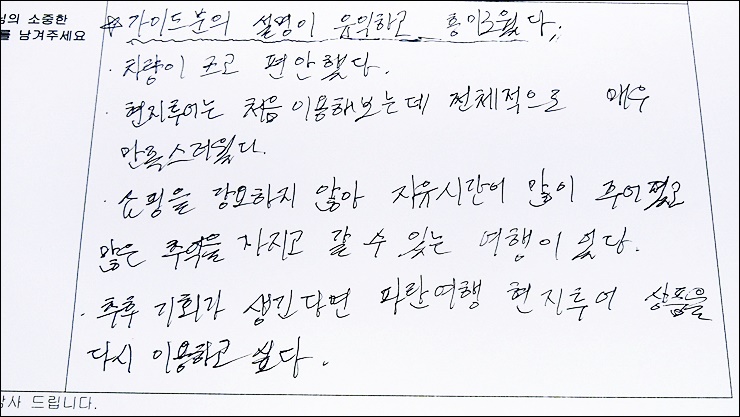 님의 소중한
를 남겨주세요
☆가이드분의 설명이 유익하고 흥미로웠다.
· 차량이 크고 편안했다.
· 현지투어는 처음 이용해보는데 전체적으로 매우
만족스러웠다.
· 쇼핑을 강요하지 않아 자유시간이 많이 주어졌고
많은 추억을 가지고 갈 수 있는 여행이었다.
· 추후 기회가 생긴다면 파란여행 현지투어 상품을
다시 이용하고 싶다.
감사 드립니다.